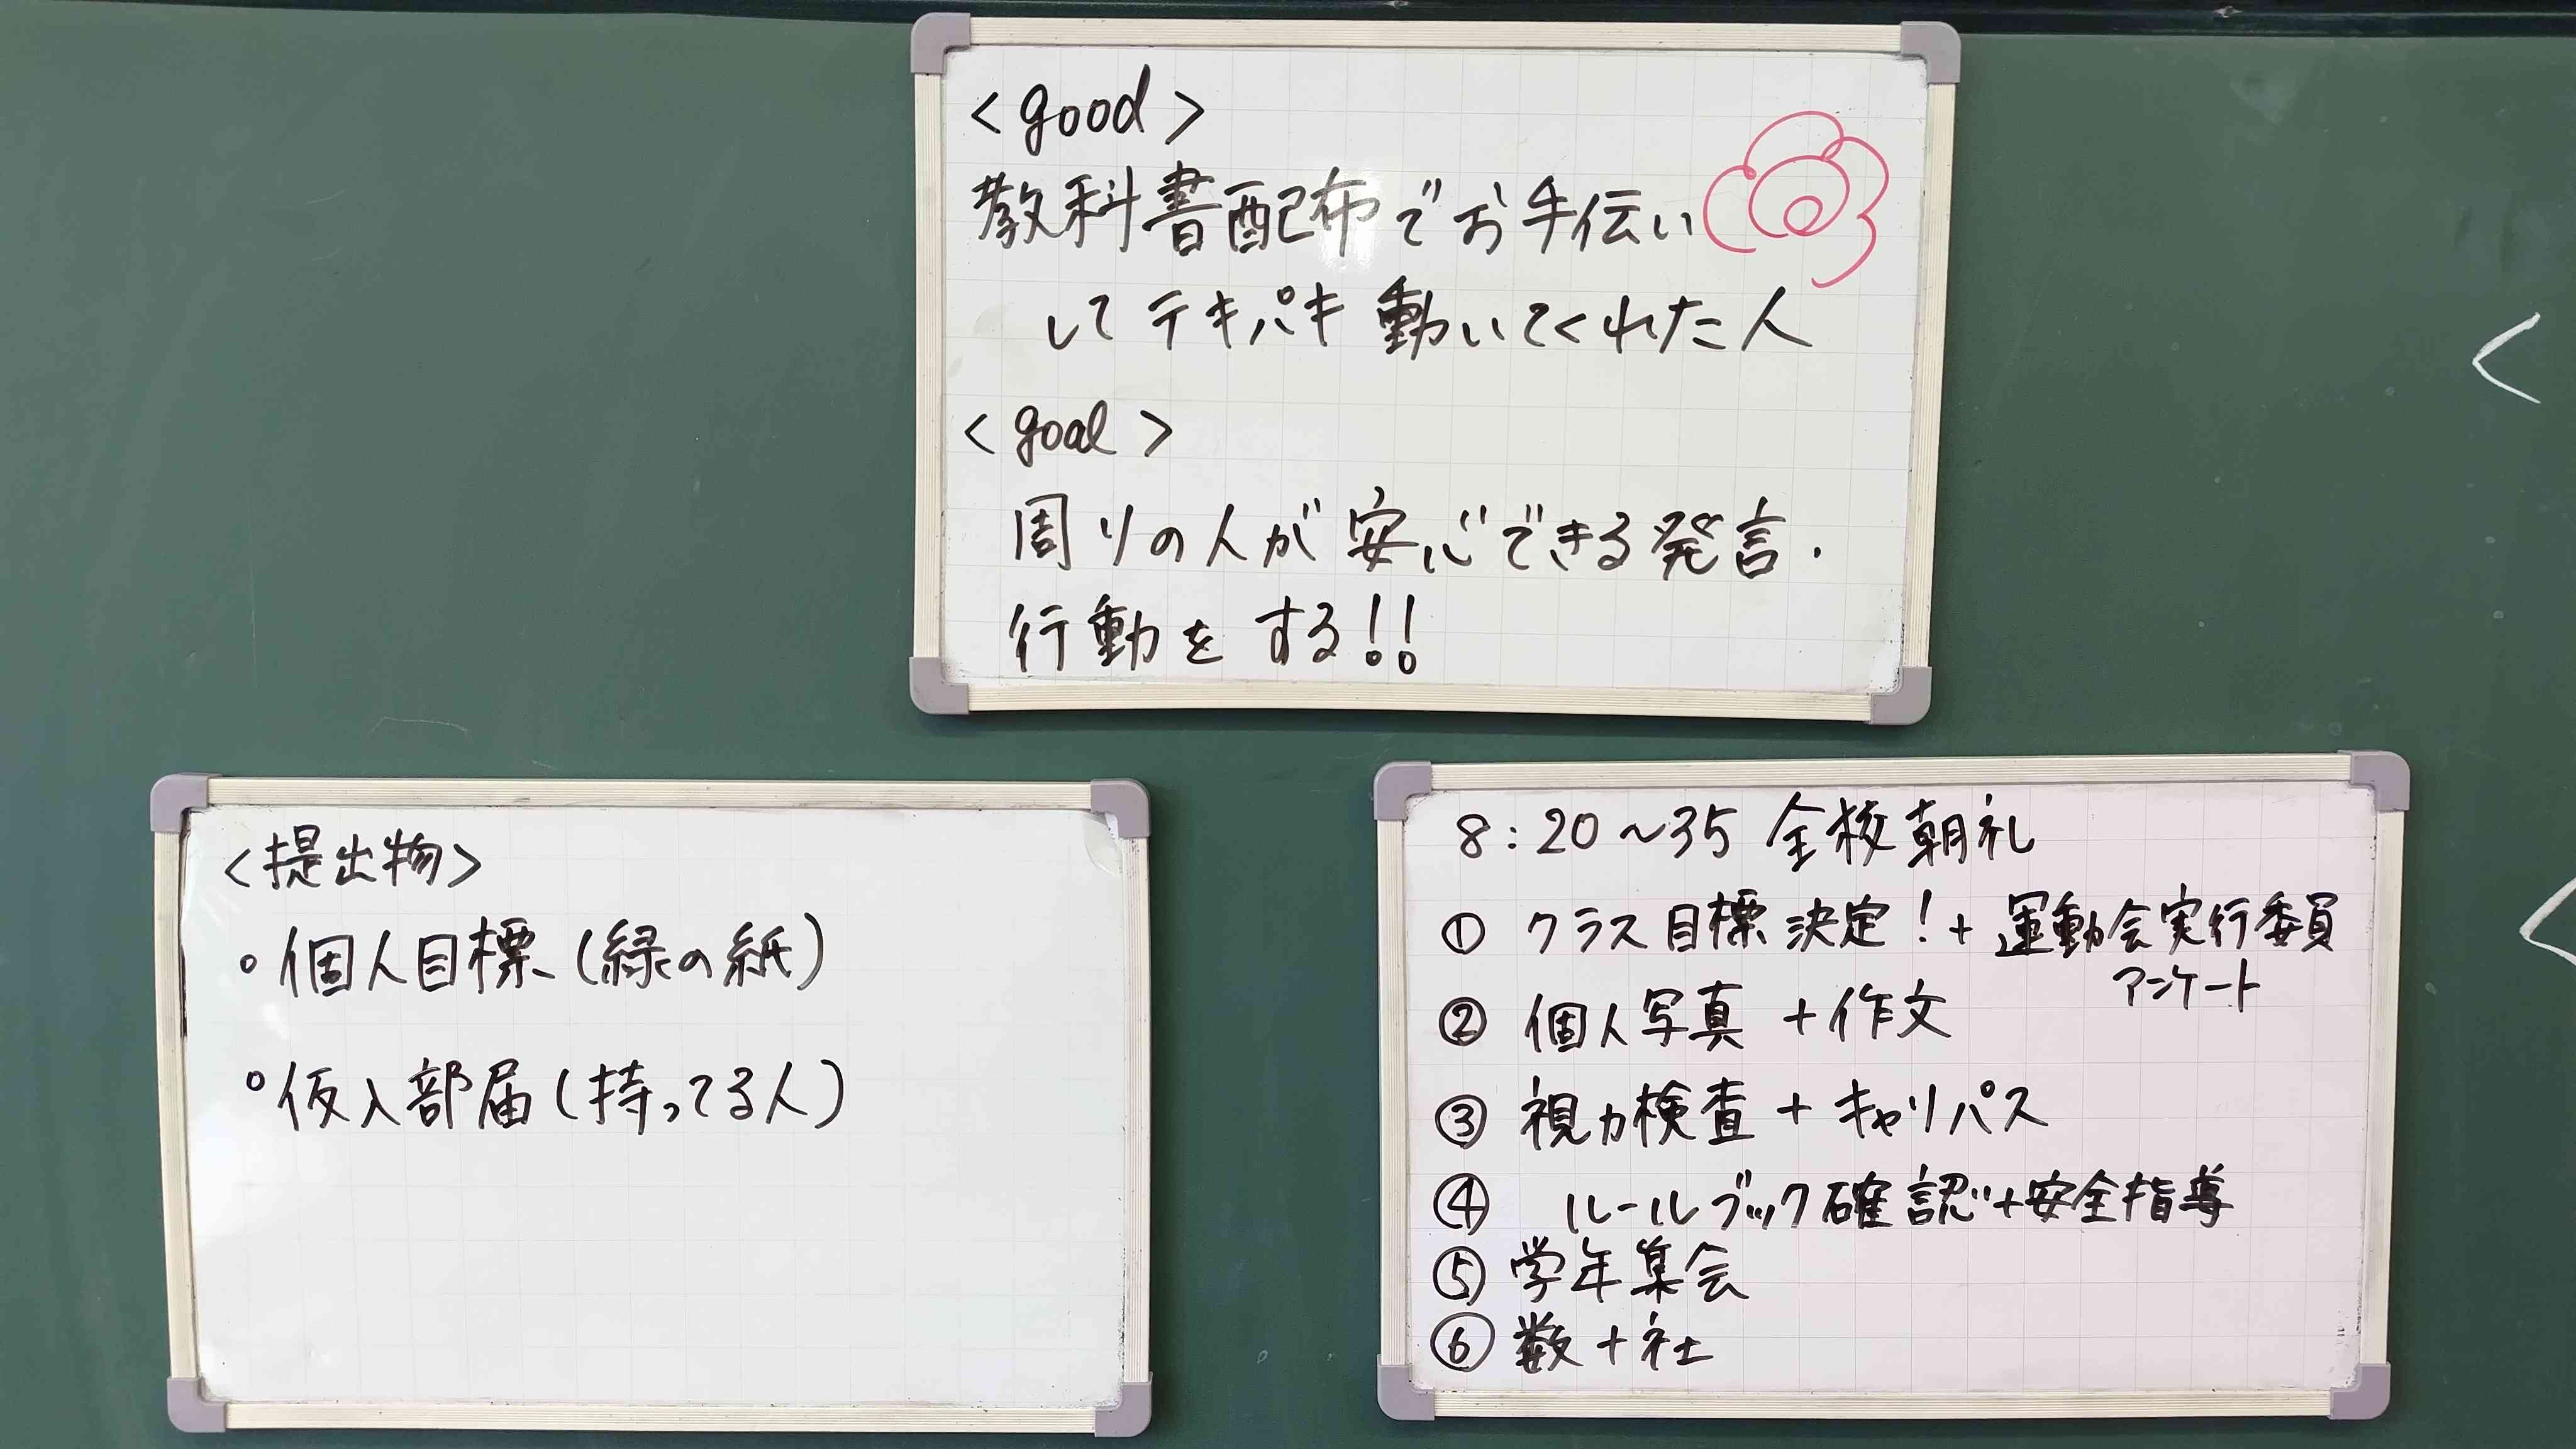 <good>
教科書配布でお手伝い
してテキパキ動いてくれた人
<goal>
周りの人が安心できる発言・
行動をする!!
<提出物>
・個人目標(緑の紙)
・仮入部届(持ってる人)
8:20~35 全校朝礼
① クラス目標決定!+運動会実行委員
アンケート
② 個人写真+作文
③ 視力検査+キャリパス
④ ルールブック確認+安全指導
⑤ 学年集会
⑥ 数+社